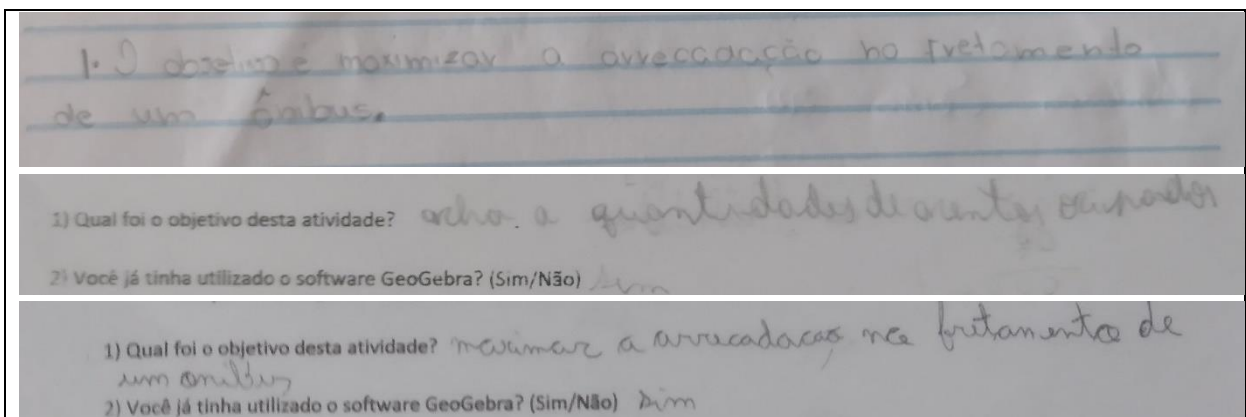 1. O objetivo é maximizar a arrecadação no fretamento
de um ônibus.
1) Qual foi o objetivo desta atividade? acha. a quantidades de acentos ocupados
2) Você já tinha utilizado o software GeoGebra? (Sim/Não) Sim
1) Qual foi o objetivo desta atividade? a arrucadacao no fretamento de
um onibus
2) Você já tinha utilizado o software GeoGebra? (Sim/Não) Sim